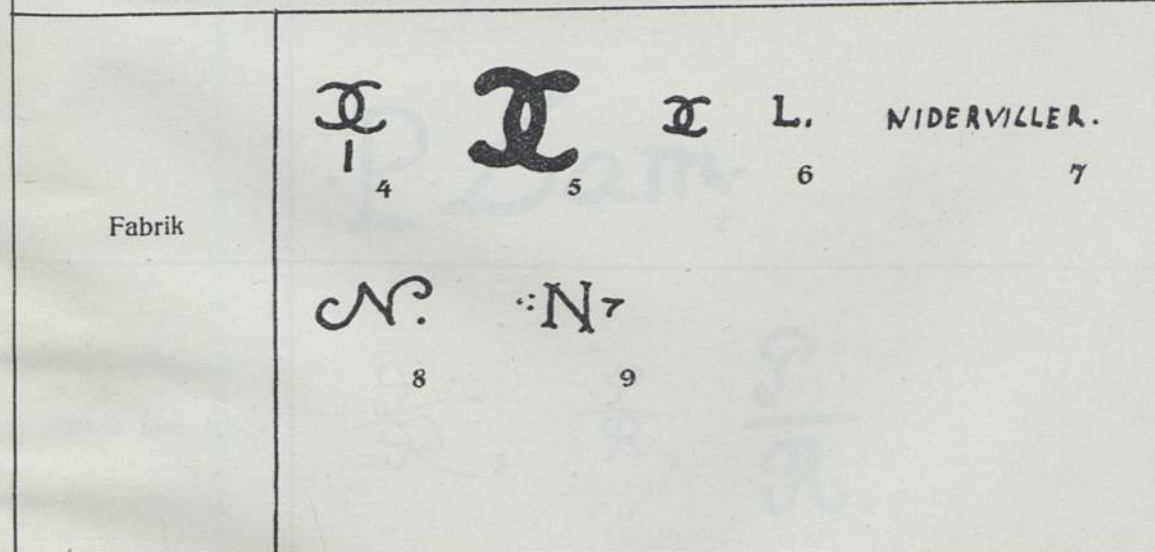 Fabrik
I L. NIDERVILLER.
4 5 6 7
N. N 7
8 9